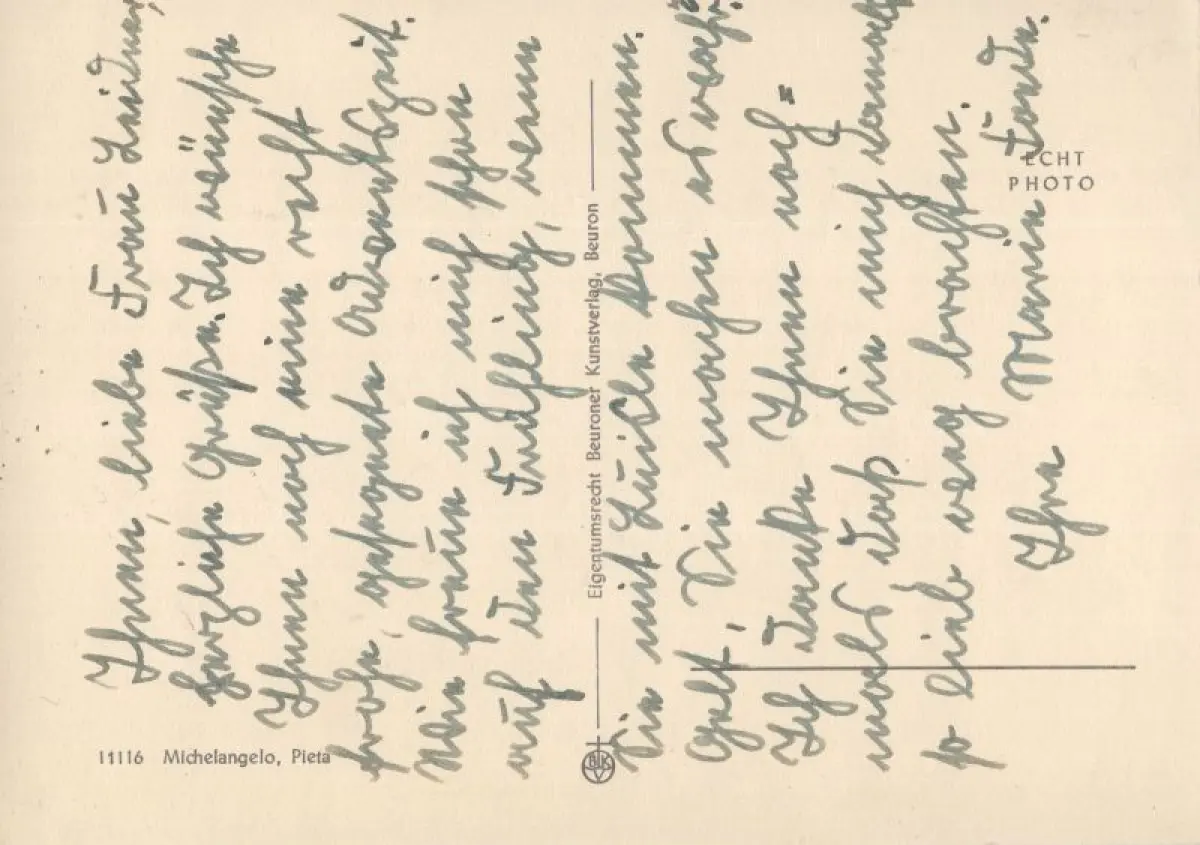 Ihnen, liebe Frau
herzliche Grüße. Ich wünsche
Ihnen noch eine recht
frohe, gesegnete Adventszeit.
Wie freue ich mich schon
auf den Frühling, wenn
Sie mit kommen.
Gelt, Sie machen es wahr.
Ich danke Ihnen noch=
mals daß Sie mich
so lieb weg brachten.
Ihre Maria
11116 Michelangelo, Pieta
Eigentumsrecht Beuroner Kunstverlag, Beuron
BKV
ECHT
PHOTO